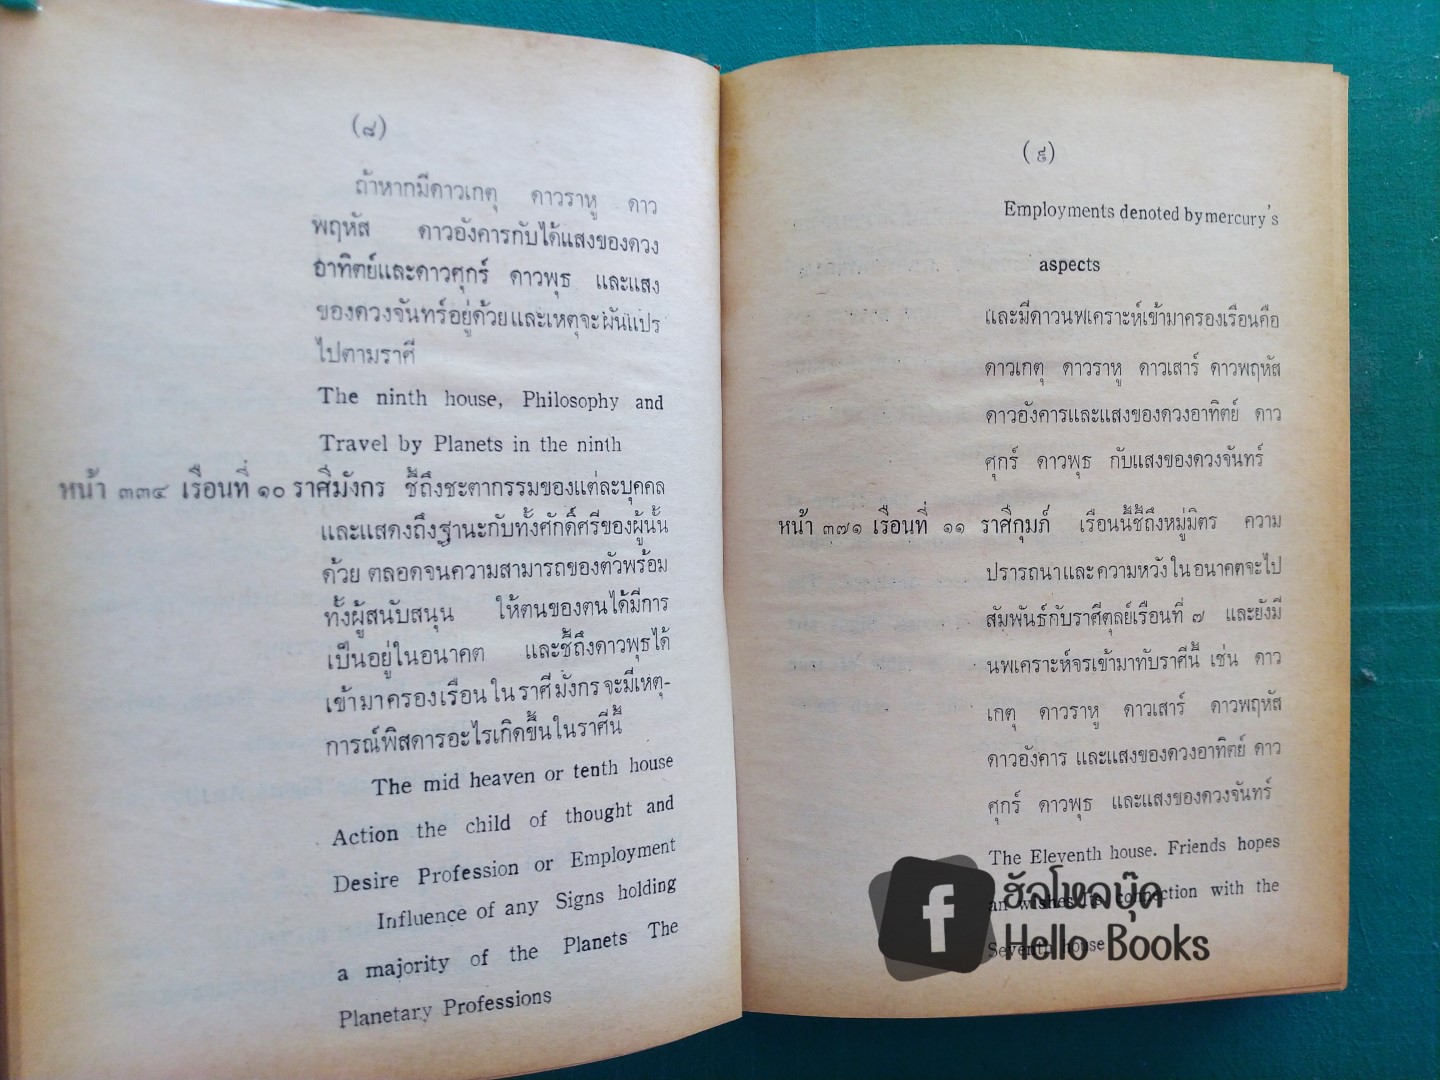 (๘)
ถ้าหากมีดาวเกตุ ดาวราหู ดาว
พฤหัส ดาวอังคารกับได้แสงของดวง
อาทิตย์และดาวศุกร์ ดาวพุธ และแสง
ของดวงจันทร์อยู่ด้วยและเหตุจะผันแปร
ไปตามราศี
The ninth house, Philosophy and
Travel by Planets in the ninth
หน้า ๓๓๔ เรือนที่ ๑๐ ราศีมังกร ชี้ถึงชะตากรรมของแต่ละบุคคล
และแสดงถึงฐานะกับทั้งศักดิ์ศรีของผู้นั้น
ด้วย ตลอดจนความสามารถของตัวพร้อม
ทั้งผู้สนับสนุน ให้ตนของตนได้มีการ
เป็นอยู่ในอนาคต และชี้ถึงดาวพุธได้
เข้ามาครองเรือนในราศีมังกรจะมีเหตุ-
การณ์พิสดารอะไรเกิดขึ้นในราศีนี้
The mid heaven or tenth house
Action the child of thought and
Desire Profession or Employment
Influence of any Signs holding
a majority of the Planets The
Planetary Professions
(๙)
Employments denoted by mercury's
aspects
และมีดาวนพเคราะห์เข้ามาครองเรือนคือ
ดาวเกตุ ดาวราหู ดาวเสาร์ ดาวพฤหัส
ดาวอังคารและแสงของดวงอาทิตย์ ดาว
ศุกร์ ดาวพุธ กับแสงของดวงจันทร์
หน้า ๓๗๑ เรือนที่ ๑๑ ราศีกุมภ์ เรือนนี้ชี้ถึงหมู่มิตร ความ
ปรารถนาและความหวังในอนาคตจะไป
สัมพันธ์กับราศีตุลย์เรือนที่ ๗ และยังมี
นพเคราะห์จรเข้ามาทับราศีนี้ เช่น ดาว
เกตุ ดาวราหู ดาวเสาร์ ดาวพฤหัส
ดาวอังคาร และแสงของดวงอาทิตย์ ดาว
ศุกร์ ดาวพุธ และแสงของดวงจันทร์
The Eleventh house. Friends hopes
an wishes Its connection with the
Seventh house
f ฮัลโหลบุ๊ค
Hello Books